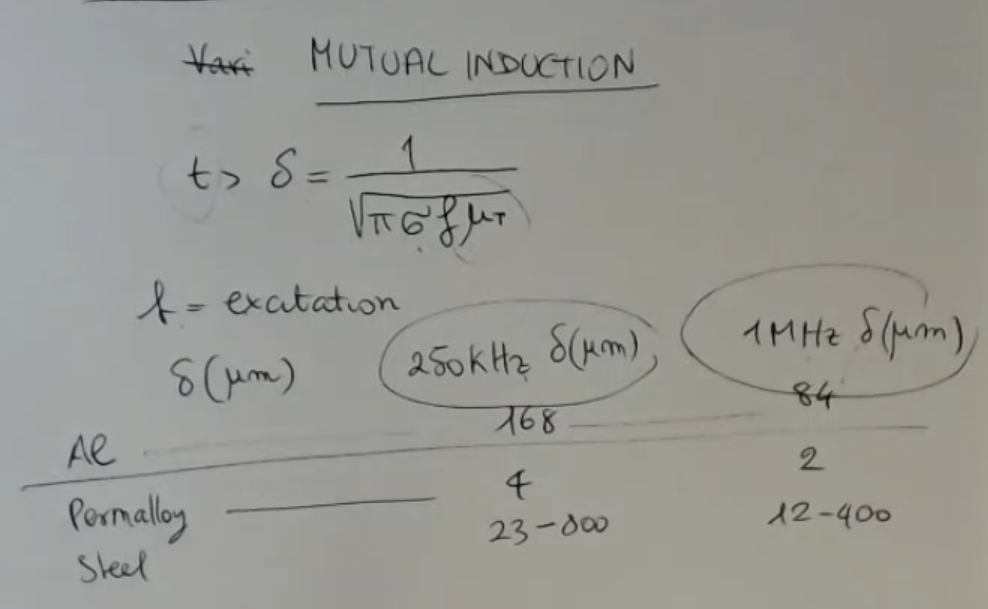 Vari MUTUAL INDUCTION
t > δ = 1 / √πσfμT
f = excitation
δ(μm) 250kHz δ(μm), 1MHz δ(μm)
Al 168 84
Permalloy 4 2
Steel 23-800 12-400